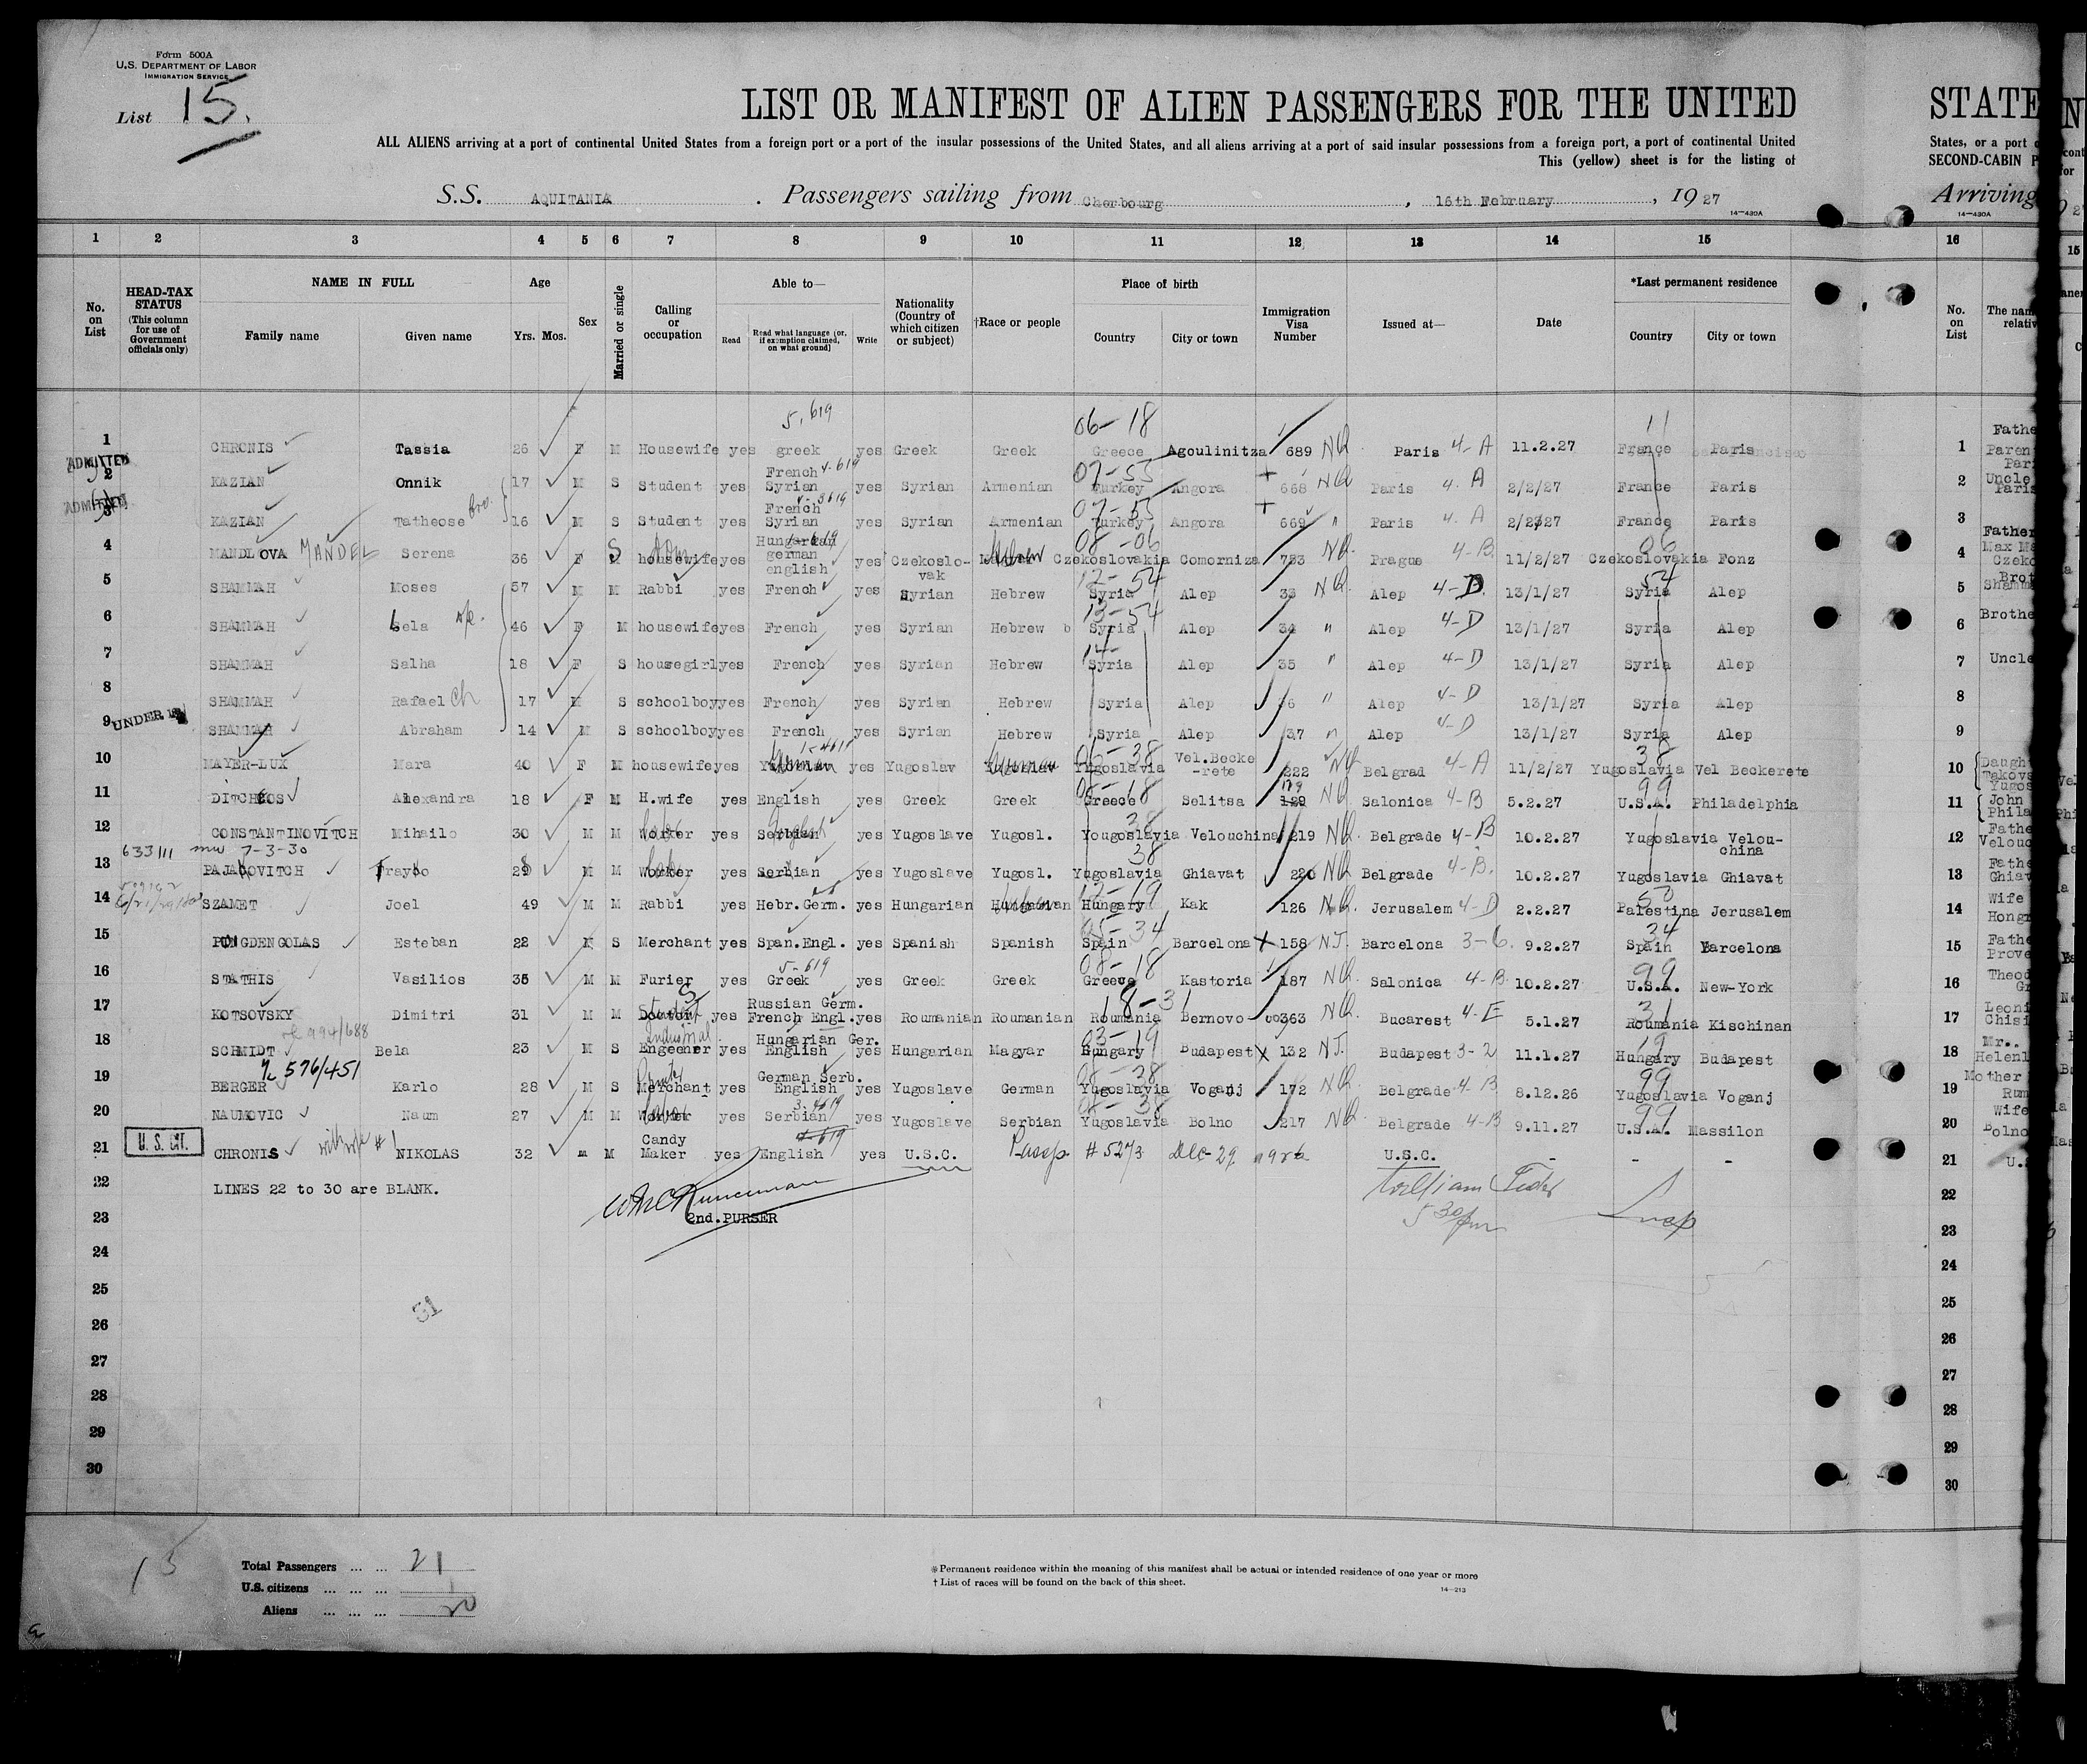 Form 500A
U.S. DEPARTMENT OF LABOR
IMMIGRATION SERVICE
List 15.
LIST OR MANIFEST OF ALIEN PASSENGERS FOR THE UNITED STATE
ALL ALIENS arriving at a port of continental United States from a foreign port or a port of the insular possessions of the United States, and all aliens arriving at a port of said insular possessions from a foreign port, a port of continental United States, or a port
This (yellow) sheet is for the listing of SECOND-CABIN P
S.S. AQUITANIA. Passengers sailing from Cherbourg, 16th February, 1927 Arriving
14—430A 14—430A
1 2 3 4 5 6 7 8 9 10 11 12 13 14 15 16
No. on List
HEAD-TAX STATUS (This column for use of Government officials only)
NAME IN FULL
Family name Given name
Age
Yrs. Mos.
Sex
Married or single
Calling or occupation
Able to—
Read Read what language (or, if exemption claimed, on what ground) Write
Nationality (Country of which citizen or subject)
†Race or people
Place of birth
Country City or town
Immigration Visa Number
Issued at—
Date
*Last permanent residence
Country City or town
No. on List
The nam
relativ
5,619 06-18 11
1 CHRONIS Tassia 26 F M Housewife yes greek yes Greek Greek Greece Agoulinitza 689 NQ Paris 4-A 11.2.27 France Paris 1 Fathe Paren Pari
ADMITTED
2 KAZIAN Onnik 17 M S Student yes French Syrian yes Syrian Armenian Turkey Angora 668 NQ Paris 4-A 2/2/27 France Paris 2 Uncle Paris
ADMITTED
3 KAZIAN Tatheose bro. 16 M S Student yes French Syrian yes Syrian Armenian Turkey Angora 669 " Paris 4-A 2/2/27 France Paris 3
4 MANDLOVA MANDEL Serena 36 F S housewife yes Hungarian german english yes Czekoslovak Czekoslovakia Comorniza 753 NQ. Prague 4-B 11/2/27 Czekoslovakia Fonz 4 Father Max M Czeko
5 SHAMMAH Moses 57 M M Rabbi yes French yes Syrian Hebrew Syria Alep 33 NQ Alep 4-D. 13/1/27 Syria Alep 5 Brot Shamm
6 SHAMMAH Lela wife. 46 F M housewife yes French yes Syrian Hebrew Syria Alep 34 " Alep 4-D 13/1/27 Syria Alep 6 Brothe
7 SHAMMAH Salha 18 F S housegirl yes French yes Syrian Hebrew Syria Alep 35 " Alep 4-D 13/1/27 Syria Alep 7 Uncle
8 SHAMMAH Rafael Ch 17 M S schoolboy yes French yes Syrian Hebrew Syria Alep 36 " Alep 4-D 13/1/27 Syria Alep 8
9 UNDER SHAMMAH Abraham 14 M S schoolboy yes French yes Syrian Hebrew Syria Alep 37 " Alep 4-D 13/1/27 Syria Alep 9
10 MAYER-LUX Mara 40 F M housewife yes German yes Yugoslav German Yugoslavia Vel.Beckerete 222 NQ Belgrad 4-A 11/2/27 Yugoslavia Vel Beckerete 10 Daugh Takovs Yugos
11 DITCHKOS Alexandra 18 F M H.wife yes English yes Greek Greek Greece Selitsa 179 NQ Salonica 4-B 5.2.27 U.S.A. Philadelphia 11 John Phila
12 CONSTANTINOVITCH Mihailo 30 M M Worker yes Serbian yes Yugoslave Yugosl. Yougoslavia Velouchina 219 NQ. Belgrade 4-B 10.2.27 Yugoslavia Velouchina 12 Fathe Velouc
633111 7-3-30
13 PAJAKOVITCH Trayko 29 M M Worker yes Serbian yes Yugoslave Yugosl. Yugoslavia Ghiavat 220 NQ Belgrade 4-B. 10.2.27 Yugoslavia Ghiavat 13 Fathe Ghiav
14 SZAMET Joel 49 M M Rabbi yes Hebr.Germ. yes Hungarian Hungary Kak 126 NQ. Jerusalem 4-D 2.2.27 Palestina Jerusalem 14 Wife Hongr
15 Esteban 22 M S Merchant yes Span.Engl. yes Spanish Spanish Spain Barcelona 158 N.J. Barcelona 3-6. 9.2.27 Spain Barcelona 15 Fathe Prove
16 STATHIS Vasilios 35 M M Furier yes Greek yes Greek Greek Greece Kastoria 187 NQ. Salonica 4-B. 10.2.27 U.S.A. New-York 16 Theod Gr
17 KOTSOVSKY Dimitri 31 M M Student yes Russian Germ. French Engl. yes Roumanian Roumanian Roumania Bernovo 363 NQ. Bucarest 4-E 5.1.27 Roumania Kischinan 17 Leoni Chisi
18 SCHMIDT Bela 23 M S Industrial Engeener yes Hungarian Ger. English yes Hungarian Magyar Hungary Budapest 132 N.J. Budapest 3-2 11.1.27 Hungary Budapest 18 Mr.. Helenl
576/451
19 BERGER Karlo 28 M S Merchant yes German Serb. English yes Yugoslave German Yugoslavia Voganj 172 NQ. Belgrade 4-B 8.12.26 Yugoslavia Voganj 19 Mother Rum
20 NAUMOVIC Naum 27 M M Worker yes Serbian yes Yugoslave Serbian Yugoslavia Bolno 217 NQ. Belgrade 4-B 9.11.27 U.S.A. Massilon 20 Wife Bolno
21 U.S. CIT. CHRONIS with wife #1 NIKOLAS 32 m M Candy Maker yes English yes U.S.C. Passp #5273 Dec-29 1926 U.S.C. - - - 21 U.
22 LINES 22 to 30 are BLANK. 22
23 2nd.PURSER 5 30 pm Insp 23
24 24
25 25
26 31 26
27 27
28 28
29 29
30 30
15
Total Passengers ... ... 21
U.S. citizens ... ... ... 1
Aliens ... ... ... 20
* Permanent residence within the meaning of this manifest shall be actual or intended residence of one year or more
† List of races will be found on the back of this sheet.
14—213